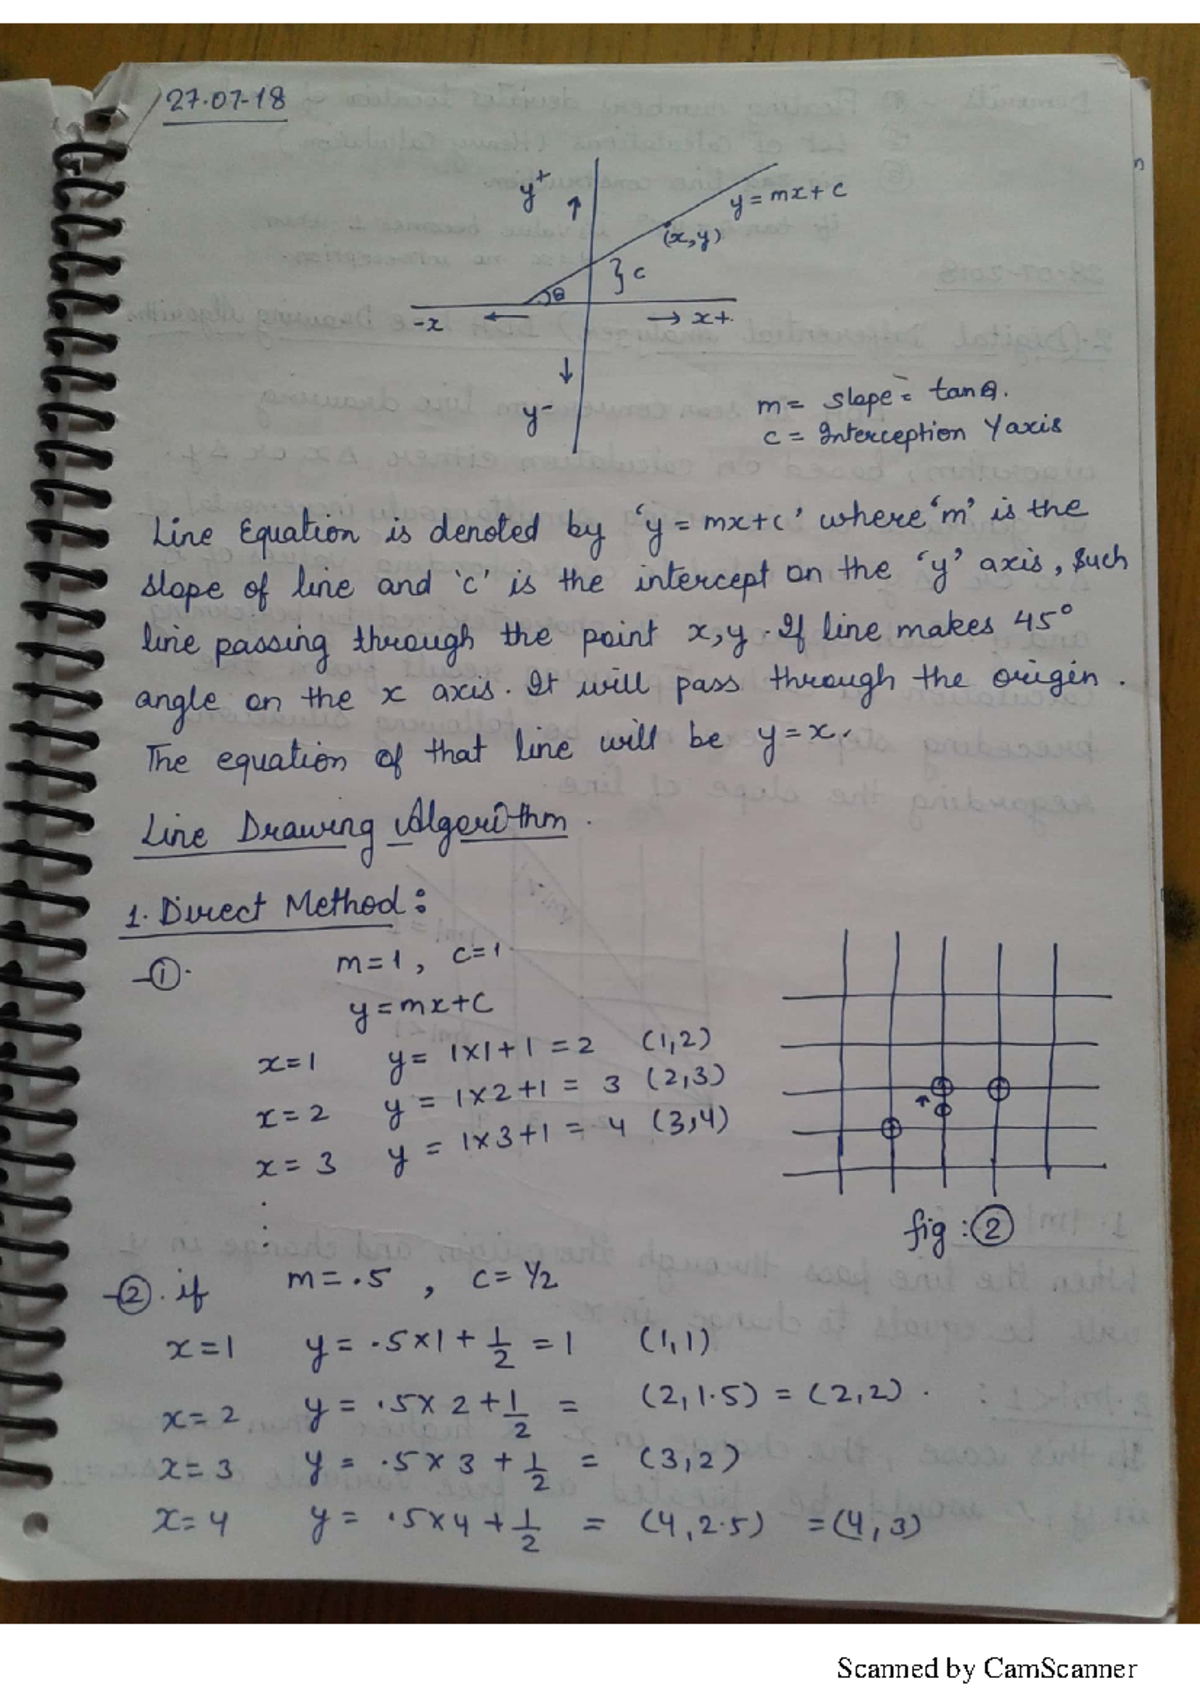 27.07-18
y+
y = mx + c
(x, y)
c
θ
-x
x+
y-
m = slope = tanθ.
c = Interception Y axis
Line Equation is denoted by 'y = mx+c' where 'm' is the
slope of line and 'c' is the intercept on the 'y' axis, such
line passing through the point x,y. If line makes 45°
angle on the x axis. It will pass through the origin.
The equation of that line will be y = x.
Line Drawing Algorithm.
1. Direct Method:
①. m=1, c=1
y = mx+c
x=1 y= 1x1+1 = 2 (1,2)
x=2 y = 1x2+1 = 3 (2,3)
x=3 y = 1x3+1 = 4 (3,4)
fig: ②
②. if m= .5, c= 1/2
x=1 y= .5x1 + 1/2 = 1 (1,1)
x=2 y= .5x2 + 1/2 = (2,1.5) = (2,2).
x=3 y= .5x3 + 1/2 = (3,2)
x=4 y= .5x4 + 1/2 = (4,2.5) = (4,3)
Scanned by CamScanner